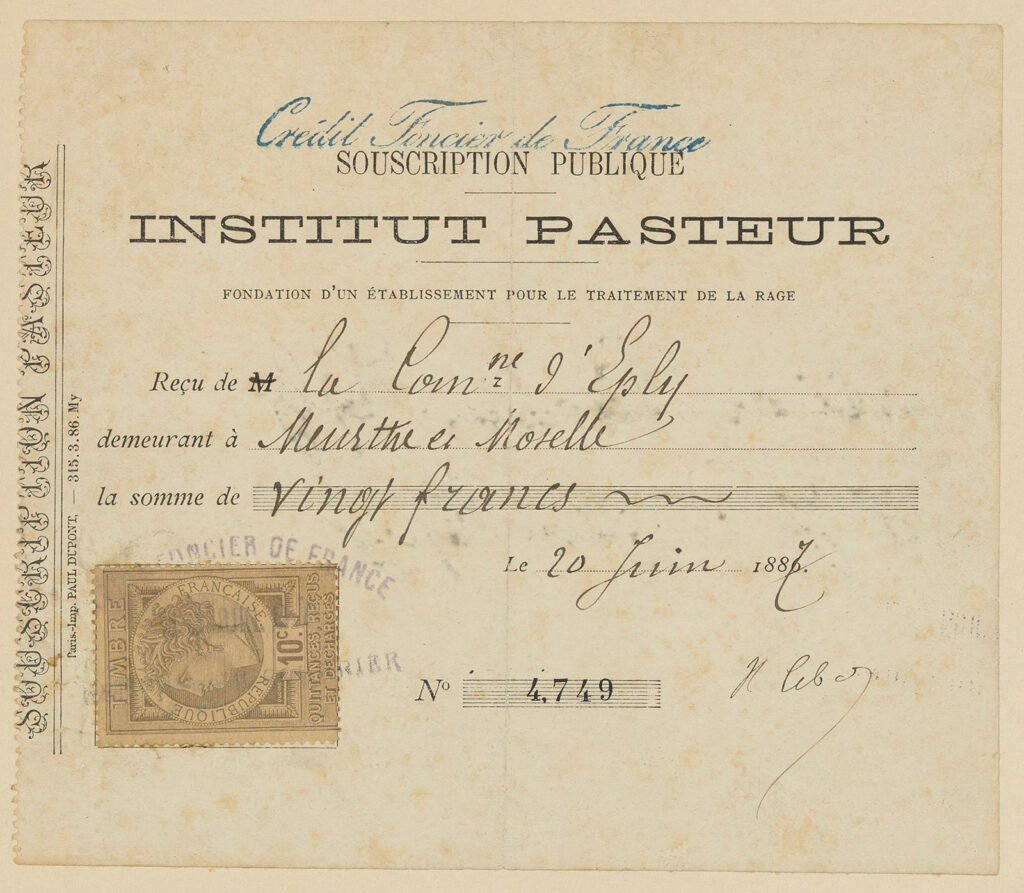 Crédit Foncier de France
SOUSCRIPTION PUBLIQUE
INSTITUT PASTEUR
FONDATION D'UN ÉTABLISSEMENT POUR LE TRAITEMENT DE LA RAGE
Reçu de M la Com.ne d'Eply
demeurant à Meurthe et Moselle
la somme de Vingt francs
Le 20 Juin 1887.
Nº 4,749
SOUSCRIPTION PASTEUR
Paris.-Imp. PAUL DUPONT, — 315.3.86.My
FONCIER DE FRANCE
TIMBRE
RÉPUBLIQUE FRANÇAISE
10c.
QUITTANCES, REÇUS
ET DÉCHARGES